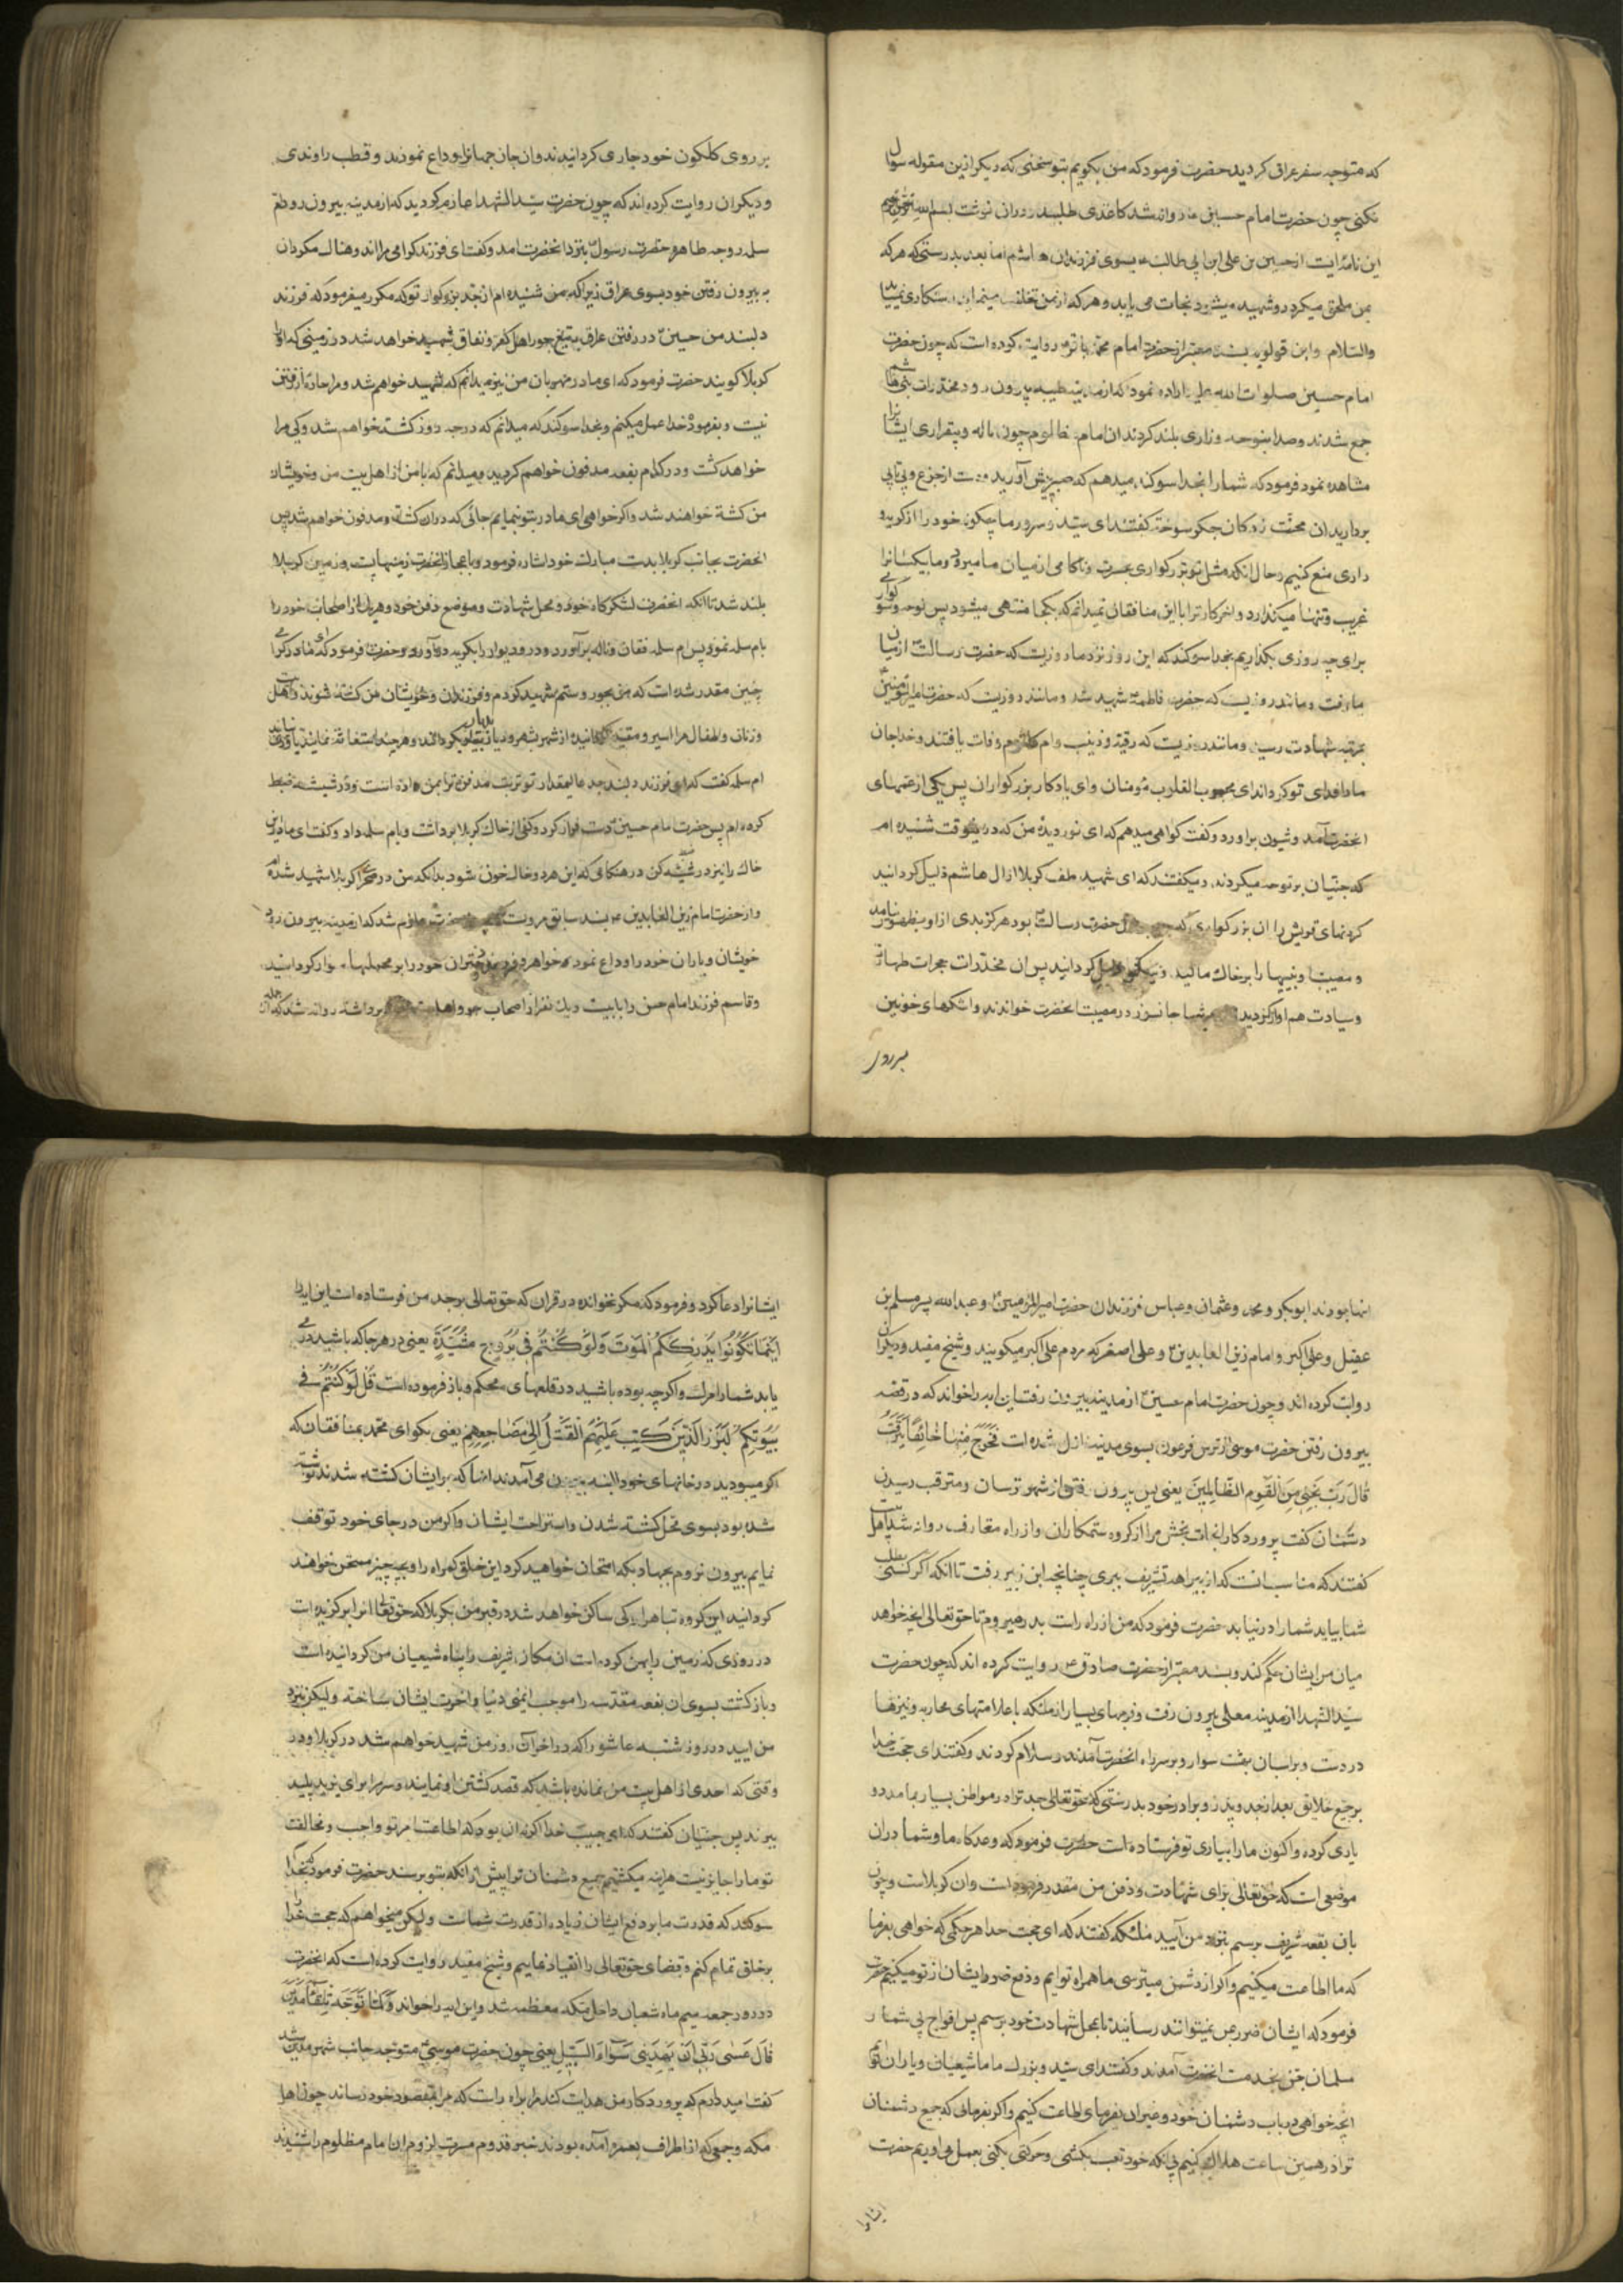 که متوجه سفر عراق کردید حضرت فرمود که من بکویم بتو سخنی که دیکر ازین مقوله سوال
نکنی چون حضرت امام حسین روانه شد کاغذی طلبید و دران نوشت بسم الله
این نامه ایست از حسین بن علی ابن ابی طالب بسوی فرزندان هاشم اما بعد بدرستی که هرکه
بمن ملحق میکردد و شهید میشود نجات می یابد و هرکه از من تخلف مینماید رستکاری نمییابد
والسلام و ابن قولویه بسند معتبر از حضرت امام محمد باقر روایت کرده است که چون حضرت
امام حسین صلوات الله علیه اراده نمود که از مدینه طیبه بیرون رود مخدرات بنی هاشم
جمع شدند و صدا بنوحه و زاری بلند کردند ان امام مظلوم چون ناله و بیقراری ایشانرا
مشاهده نمود فرمود که شما را بخدا سوکند میدهم که صبر پیش آورید و دست از جزع و بی تابی
بردارید ان محنت زدکان جکر سوخته کفتند ای سید و سرور ما چکونه خود را از کریه و
زاری منع کنیم و حال انکه مثل تو بزرکواری عسرت و ناکامی از میان ما میرود و ما بیکسانرا
غریب و تنها میکذارد و اخر کار ترا با این منافقان نمیدانم که بکجا منتهی میشود پس نوحه و سوکواری
برای چه روزی بکذاریم بخدا سوکند که این روز نزد ما روزیست که حضرت رسالت از میان
ما رفت و مانند روزیست که حضرت فاطمه شهید شد و مانند روزیست که حضرت امیرالمومنین
بمرتبه شهادت رسید و مانند روزیست که رقیه و زینب و ام کلثوم وفات یافتند و خدا جان
ما را فدای تو کرداند ای محبوب القلوب مومنان و ای یادکار بزرکواران پس یکی از عمهای
انحضرت آمد و شیون براورد و کفت کواهی میدهم که ای نور دیدۀ من که در اینوقت شنیده ام
که جنیان بر نوحه میکردند و میکفتند که ای شهید طف کربلا از ال هاشم ذلیل کردانید
کردنهای قریش را ان بزرکواری که حضرت رسالت بود هرکز بدی از او بظهور نیامد
و مصیبت او بینیها را بر خاک مالید و نیکو ذلیل کردانید پس ان مخدرات حجرات طهارت
و سیادت هم اواز کردیده مرثیها جانسوز در مصیبت انحضرت خواندند و اشکهای خونین
بر روی
بر روی کلکون خود جاری کردانیدند و ان جان جهانرا وداع نمودند و قطب راوندی
و دیکران روایت کرده اند که چون حضرت سید الشهدا عازم کردید که از مدینه بیرون رود ام
سلمه زوجه طاهره حضرت رسول بنزد انحضرت امد و کفت ای فرزند کرامی مرا اندوهناک مکردان
به بیرون رفتن خود بسوی عراق زیرا که من شنیده ام از جد بزرکوار تو که مکرر میفرمود که فرزند
دلبند من حسین در زمین عراق بتیغ جور اهل کفر و نفاق شهید خواهد شد در زمینی که انرا
کربلا کویند حضرت فرمود که ای مادر مهربان من نیز میدانم که شهید خواهم شد و مرا چاره از رفتن
نیست و بفرموده خدا عمل میکنم و بخدا سوکند که میدانم که درچه روز کشته خواهم شد و کی مرا
خواهد کشت و در کدام بقعه مدفون خواهم کردید و میدانم که با من از اهل بیت من و خویشان
من کشته خواهند شد و اکر خواهی ای مادر بتو بنمایم جائی که دران کشته و مدفون خواهم شد پس
انحضرت بجانب کربلا بدست مبارک خود اشاره فرمود و باعجاز انحضرت زمینها پست و زمین کربلا
بلند شد تا انکه انحضرت لشکرکاه خود و محل شهادت و موضع دفن خود و هریک از اصحاب خود را
بام سلمه نمود پس ام سلمه فغان و ناله برآورد و در و دیوار را بکریه درآورد و حضرت فرمود که ای مادر کرامی
چنین مقدر شده است که من بجور و ستم شهید کردم و فرزندان و خویشان من کشته شوند و اهل بیت
و زنان و اطفال مرا اسیر و مقید کردانیده از شهر بشهر و دیار بدیار بکردانند و هرچند استغاثه نمایند یاوری نیابند
ام سلمه کفت که ای فرزند دلبند جد عالیمقدار تو تربت مدفن ترا بمن داده است و در شیشه ضبط
کرده ام پس حضرت امام حسین دست فراز کرد و کفی از خاک کربلا برداشت و بام سلمه داد و کفت ای مادر این
خاک را نیز در شیشه کن در هنکامی که این هر دو خاک خون شود بدانکه من در صحرای کربلا شهید شده ام
و از حضرت امام زین العابدین بسند سابق مرویست که چون حضرت عازم شد که از مدینه بیرون رود
خویشان و یاران خود را وداع نموده خواهر و فرزندان و دختران خود را بر محملها سوار کردانید
و قاسم فرزند امام حسن را با بیست و یک نفر از اصحاب خود و اهل بیت برداشته روانه شد که از جمله
اینها بودند ابوبکر و محمد و عثمان و عباس فرزندان حضرت امیرالمومنین و عبدالله پسر مسلم بن
عقیل و علی اکبر و امام زین العابدین و علی اصغر که مردم علی اکبر میکویند و شیخ مفید و دیکران
روایت کرده اند و چون حضرت امام حسین از مدینه بیرون رفت این ایه را خواند که در قصه
بیرون رفتن حضرت موسی از ترس فرعون بسوی مدین نازل شده است فَخَرَجَ مِنْها خائِفًا یَتَرَقَّبُ
قالَ رَبِّ نَجِّنی مِنَ الْقَوْمِ الظّالِمینَ یعنی پس بیرون رفت از شهر ترسان و مترقب رسیدن
دشمنان کفت پروردکارا نجات بخش مرا از کروه ستمکاران و از راه متعارف روانه شد
کفتند که مناسب انست که از بیراهه تشریف ببری چنانچه ابن زبیر رفت تا انکه اکر کسی بطلب
شما بیاید شما را در نیابد حضرت فرمود که من از راه راست بدر نمیروم تا حق تعالی انچه خواهد
میان من و ایشان حکم کند و بسند معتبر از حضرت صادق روایت کرده اند که چون حضرت
سید الشهدا از مدینه معلی بیرون رفت فوجهای بسیار از ملئکه با علامتهای محاربه و نیزها
در دست و بر اسبان بهشت سوار و بر سر راه انحضرت آمدند و سلام کردند و کفتند ای حجت خدا
بر جمیع خلایق بعد از جد و پدر و برادر خود بدرستی که حق تعالی جد ترا در مواطن بسیار بما مدد و
یاری کرده و اکنون ما را بیاری تو فرستاده است حضرت فرمود که وعدکاه ما و شما دران
موضعی است که حق تعالی برای شهادت و دفن من مقدر فرموده است و ان کربلاست و چون
بان بقعه شریف برسم بنزد من آیید ملئکه کفتند که ای حجت خدا هر حکمی که خواهی بفرما
که ما اطاعت میکنیم و اکر از دشمن میترسی ما همراه توایم و دفع ضرر ایشان از تو میکنیم حضرت
فرمود که ایشان ضرر بمن نمیتوانند رسانید تا بمحل شهادت خود برسم پس افواج بی شمار از
مسلمانان جن بخدمت انحضرت آمدند و کفتند ای سید و بزرک ما ما شیعیان و یاران توایم
انچه خواهی در باب دشمنان خود و غیر ان بفرما تا اطاعت کنیم و اکر بفرمائی که جمیع دشمنان
ترا در همین ساعت هلاک کنیم بی انکه خود تعب بکشی و حرکتی بکنی بعمل می اوریم حضرت
ایشانرا
ایشانرا دعا کرد و فرمود که مکر نخوانده در قران که حق تعالی بر جد من فرستاده است این ایه را
اَیْنَما تَکُونُوا یُدْرِکْکُمُ الْمَوْتُ وَلَوْ کُنْتُمْ فی بُرُوجٍ مُشَیَّدَةٍ یعنی در هرجا که باشید در می
یابد شما را مرک و اکرچه بوده باشید در قلعهای محکم و باز فرموده است قُلْ لَوْ کُنْتُمْ فی
بُیُوتِکُمْ لَبَرَزَ الَّذینَ کُتِبَ عَلَیْهِمُ الْقَتْلُ اِلی مَضاجِعِهِمْ یعنی بکو ای محمد بمنافقان که
اکر میبودید در خانهای خود البته بیرون می آمدند انها که بر ایشان کشته شدن نوشته
شده بود بسوی محل کشته شدن و استراحت ایشان و اکر من در جای خود توقف
نمایم بیرون نروم بجهاد بکه امتحان خواهد کرد این خلق کمراه را و بچه چیز ممتحن خواهند
کردانید این کروه تباه را و کی ساکن خواهد شد در قبر من بکربلا که حق تعالی انرا برکزیده است
در روزی که زمین را پهن کرده است ان مکان شریف را پناه شیعیان من کردانیده است
و بازکشت بسوی ان بقعه مقدسه را موجب ایمنی دنیا و اخرت ایشان ساخته ولیکن بنزد
من ایید در روز شنبه عاشورا که در اخر ان روز من شهید خواهم شد در کربلا و در
وقتی که احدی از اهل بیت من نمانده باشد که قصد کشتن او نمایند و سر مرا برای یزید پلید
ببرند پس جنیان کفتند که ای حبیب خدا اکر نه ان بود که اطاعت امر تو واجب و مخالفت
تو ما را جایز نیست هراینه میکشتیم جمیع دشمنان ترا پیش از انکه بتو برسند حضرت فرمود که بخدا
سوکند که قدرت ما بر دفع ایشان زیاده از قدرت شماست ولیکن میخواهم که حجت خدا را
بر خلق تمام کنم و قضای حق تعالی را انقیاد نمایم و شیخ مفید روایت کرده است که انحضرت
در روز جمعه سیم ماه شعبان داخل مکه معظمه شد و این ایه را خواند وَلَمّا تَوَجَّهَ تِلْقاءَ مَدْیَنَ
قالَ عَسی رَبّی اَنْ یَهْدِیَنی سَواءَ السَّبیلِ یعنی چون حضرت موسی متوجه جانب شهر مدین شد
کفت امید دارم که پروردکار من هدایت کند مرا براه راست که مرا بمقصود خود رساند چون اهل
مکه و جمعی که از اطراف بعمره آمده بودند خبر قدوم مسرت لزوم ان امام مظلوم را شنیدند